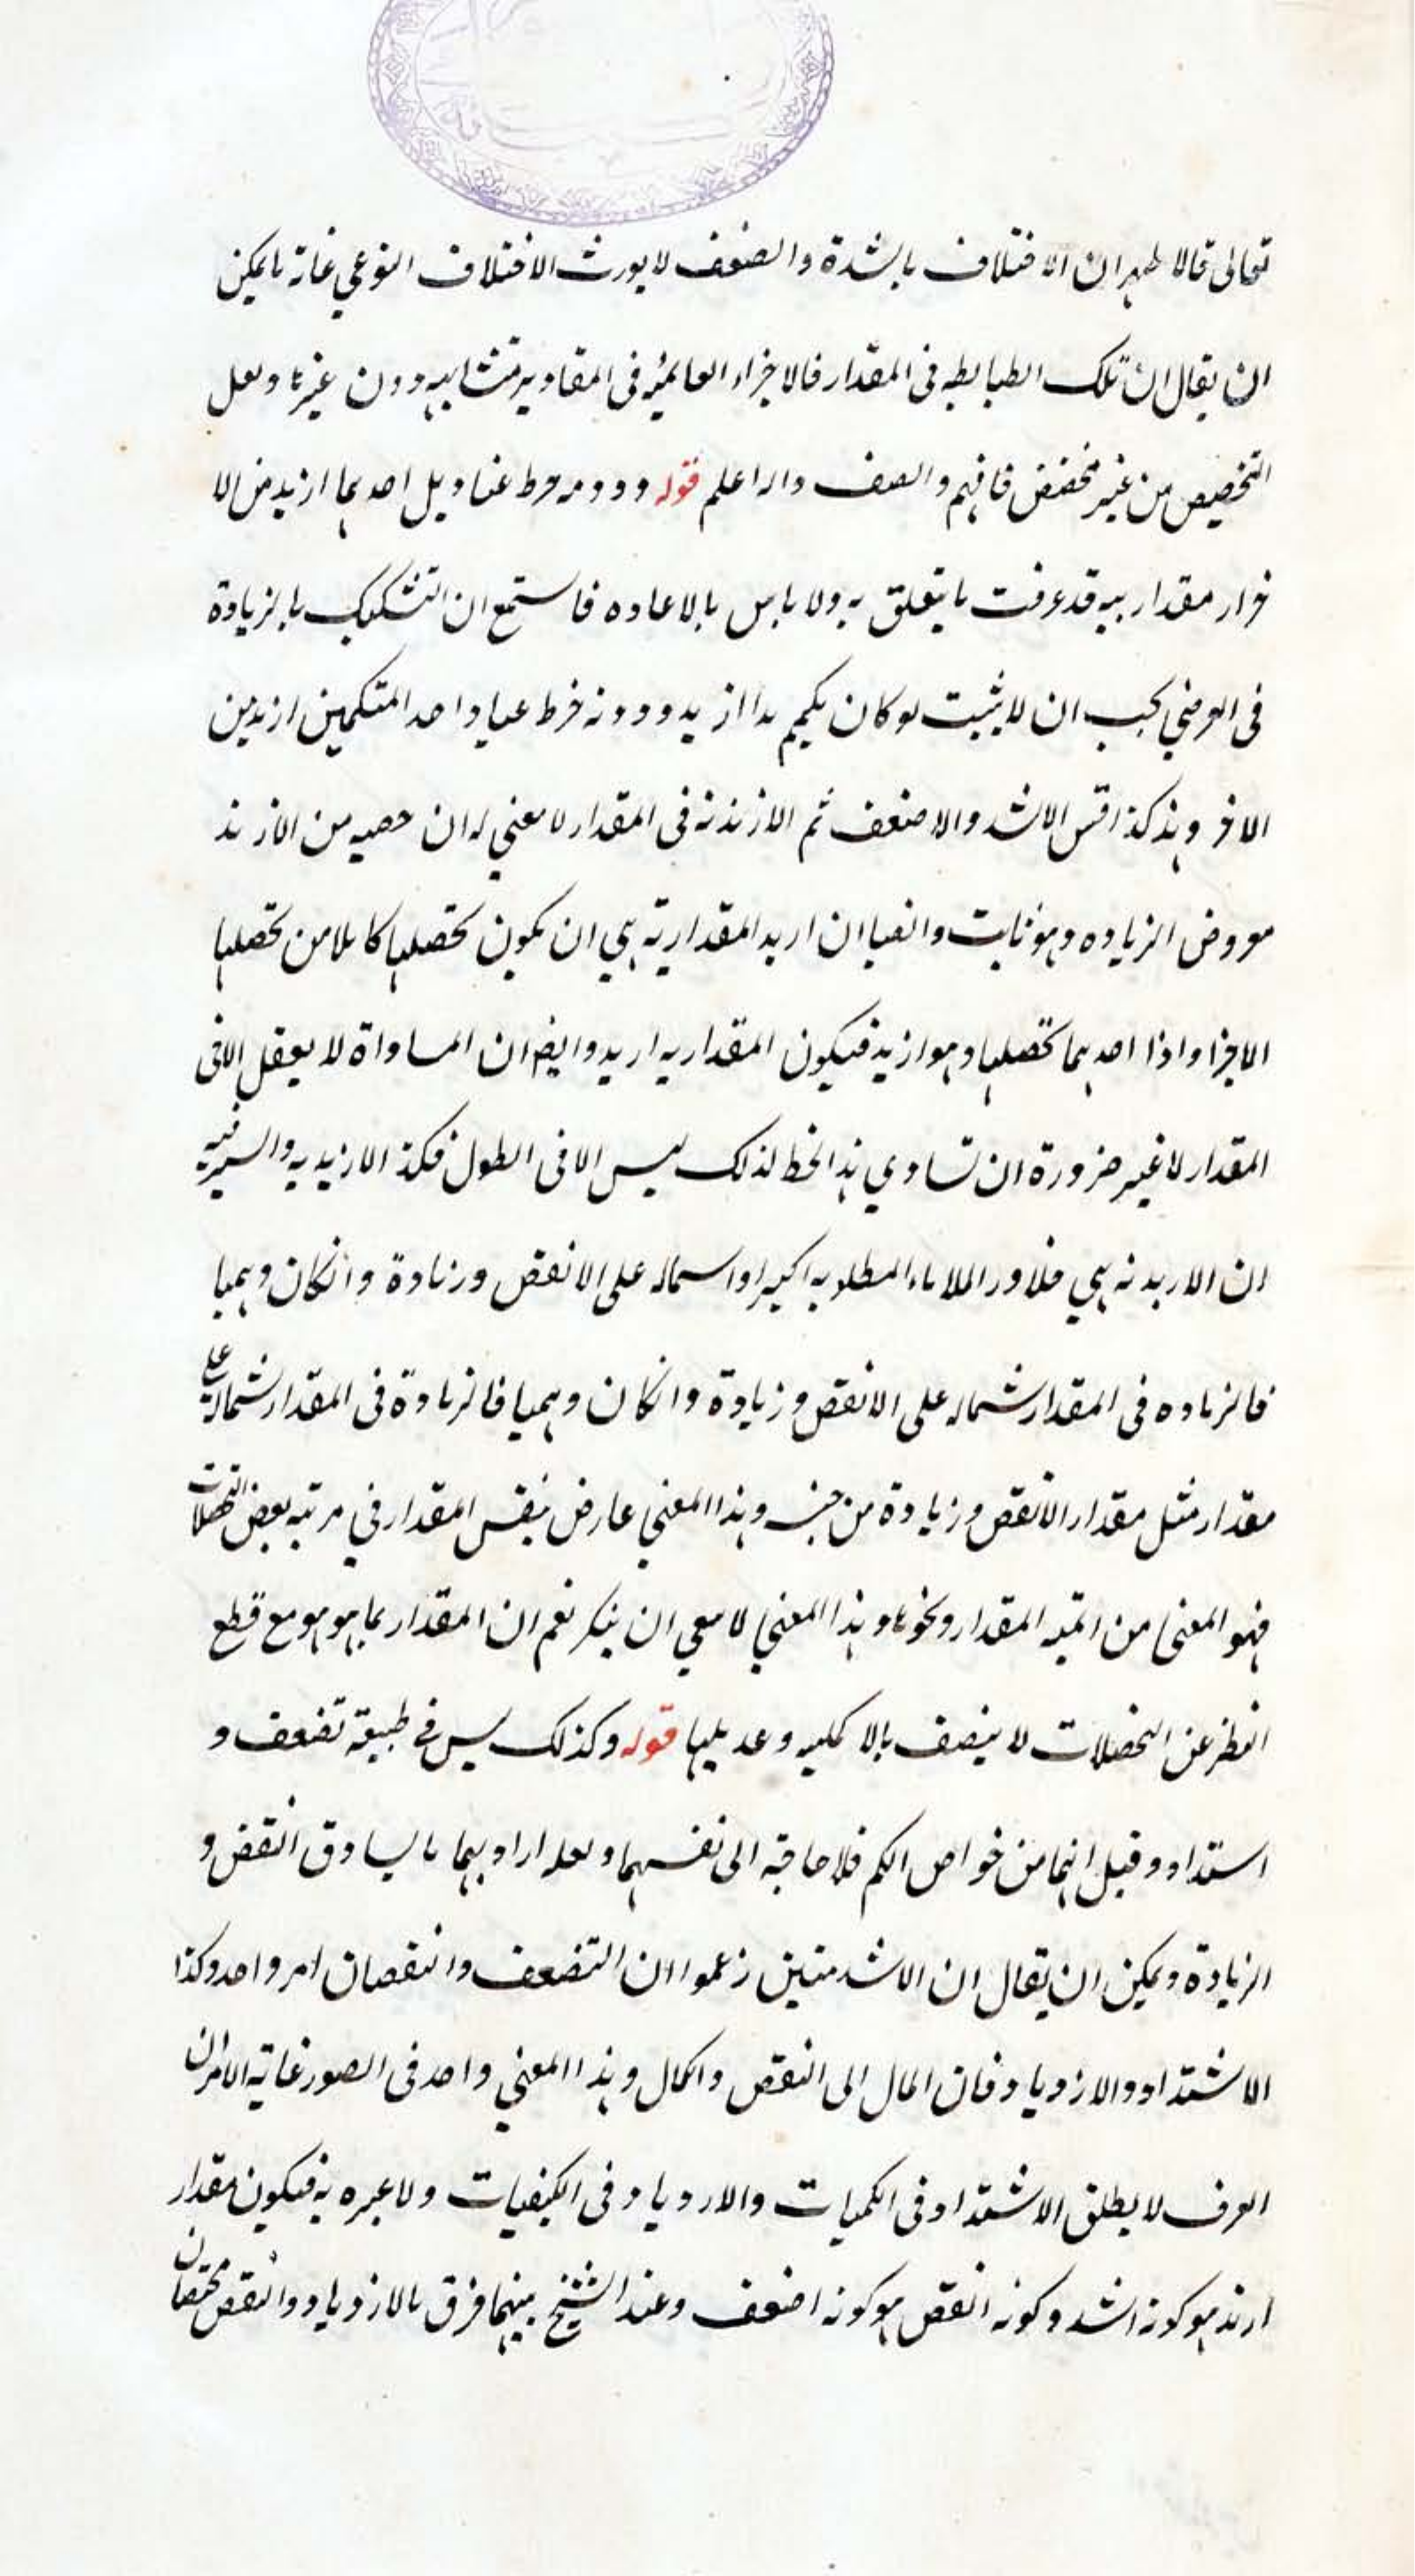 تعالى قالا ظهر ان الاختلاف بالشدة والضعف لا يورث الاختلاف النوعي غاية ما يمكن
ان يقال ان تلك الضابطه في المقدار فالاجزاء في المقادير متشابهه دون غيرها ولعل
التخصيص من غير مخصص فافهم وانصف والله اعلم قوله ودونه خرط احدهما ازيد من الا
خر ار مقداريه قد عرفت ما يتعلق به ولا باس بالاعاده فاستمع ان التشكيك بالزيادة
في العرضي يجب ان لا يثبت لو كان ازيد ودونه خرط واحد المتكممين ازيد من
الاخر وهذا كذا قس الاشد والاضعف ثم الازيدية في المقدار لا معنى له ان حصيه من الازيد
معروض الزياده وهو ثابت وايضا ان اريد المقدارية هي ان يكون تحصلها كاملا من تحصلها
الاجزا واذا احدهما تحصلها وهو ازيد فيكون المقداريه ازيد وايضا ان المساواة لا يعقل الا في
المقدار لا غير ضرورة ان تساوي هذا الخط لذلك ليس الا في الطول فكذا الازيديه والسر فيه
ان الازيدية هي على الانقص وزيادة وانكان وهميا
فالزياده في المقدار شماله على الانقص وزيادة وانكان وهميا فالزيادة في المقدار شماله على
مقدار مثل مقدار الانقص وزيادة من جنسه وهذا المعنى عارض لنفس المقدار في مرتبه بعض التحصلات
فهو المعنى من اتميه المقدار ونحوها وهذا المعنى لا معنى ان ينكر نعم ان المقدار بما هو هو مع قطع
النظر عن التحصلات لا يتصف بالاكمليه وعديلها قوله وكذلك ليس في طبيعة تضعف و
استداد وقيل انهما من خواص الكم فلا حاجة الى نفسهما ولعله اراد بهما ما يساوق النقص و
الزيادة ويمكن ان يقال ان زعموا ان التضعف وانتقصان امر واحد وكذا
الاشتداد والازدياد فان المال الى النقص والكمال وهذا المعنى واحد في الصور غاية الامر ان
العرف لا يطلق الاشتداد في الكميات والازدياد في الكيفيات ولا عبره به فيكون مقدار
ازيد هو كونه اشد وكونه انقص هو كونه اضعف وعند الشيخ بينهما فرق بالازدياد والنقص مختصان